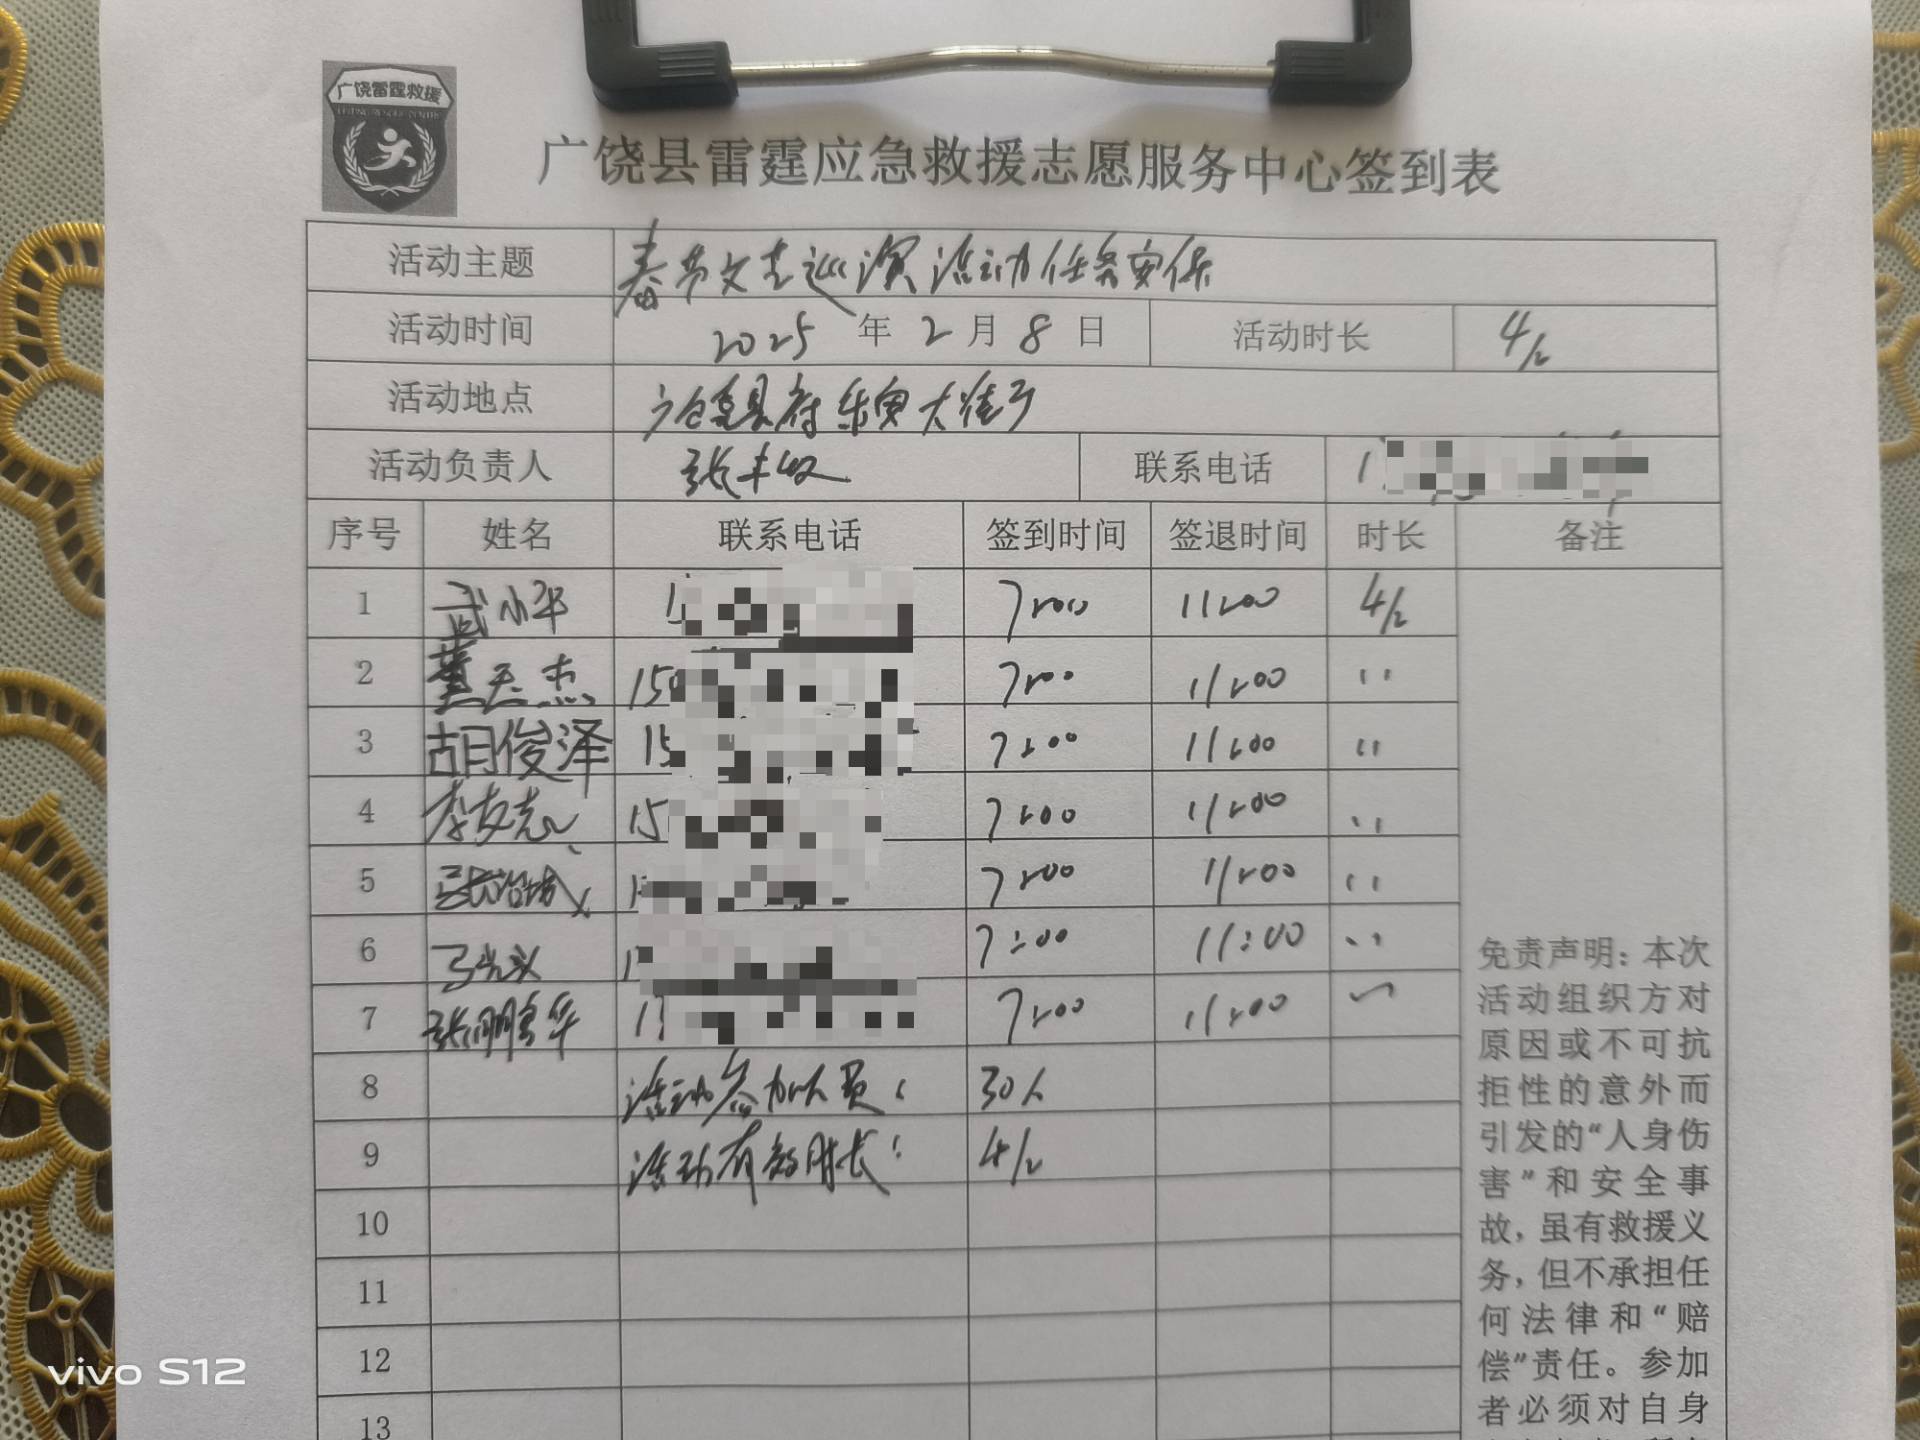 广饶雷霆救援
广饶县雷霆应急救援志愿服务中心签到表
活动主题 春节文艺巡演活动任务安保
活动时间 2025年2月8日 活动时长 4/2
活动地点 广饶县府乐安大街
活动负责人 张丰收 联系电话 1
序号 姓名 联系电话 签到时间 签退时间 时长 备注
1 武小华 1 7:00 11:00 4/2
2 董天杰 150 7:00 11:00 〃
3 胡俊泽 15 7:00 11:00 〃
4 李友志 15 7:00 11:00 〃
5 1 7:00 11:00 〃
6 1 7:00 11:00 〃
7 张鹏华 1 7:00 11:00
8 活动参加人员: 30人
9 活动有效时长: 4/2
10
11
12
13
免责声明:本次
活动组织方对
原因或不可抗
拒性的意外而
引发的“人身伤
害”和安全事
故,虽有救援义
务,但不承担任
何法律和“赔
偿”责任。参加
者必须对自身
vivo S12